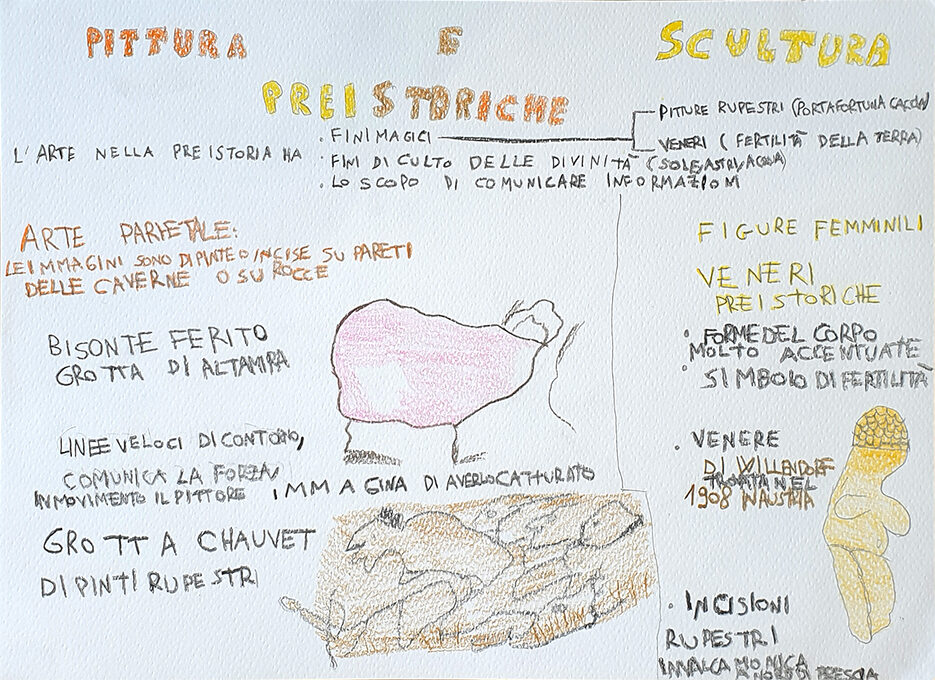 PITTURA E SCULTURA
PREISTORICHE
L'ARTE NELLA PREISTORIA HA
· FINI MAGICI
PITTURE RUPESTRI (PORTAFORTUNA CACCIA)
VENERI (FERTILITÀ DELLA TERRA)
· FINI DI CULTO DELLE DIVINITÀ (SOLE/ASTRI/ACQUA)
· LO SCOPO DI COMUNICARE INFORMAZIONI
ARTE PARIETALE:
LE IMMAGINI SONO DIPINTE O INCISE SU PARETI
DELLE CAVERNE O SU ROCCE
BISONTE FERITO
GROTTA DI ALTAMIRA
LINEE VELOCI DI CONTORNO,
COMUNICA LA FORZA
IN MOVIMENTO IL PITTORE IMMAGINA DI AVERLO CATTURATO
GROTTA CHAUVET
DIPINTI RUPESTRI
FIGURE FEMMINILI
VENERI
PREISTORICHE
· FORME DEL CORPO
MOLTO ACCENTUATE
· SIMBOLO DI FERTILITÀ
· VENERE
DI WILLENDORF
TROVATA NEL
1908 IN AUSTRIA
· INCISIONI
RUPESTRI
IN VALCAMONICA
A NORD DI BRESCIA